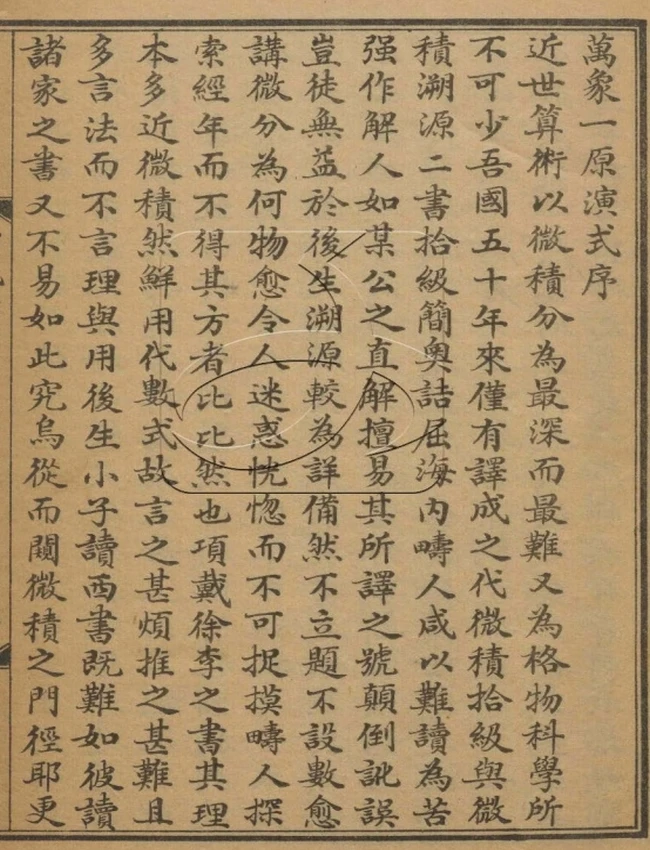 萬象一原演式序
近世算術以微積分為最深而最難又為格物科學所
不可少吾國五十年來僅有譯成之代微積拾級與微
積溯源二書拾級簡奧詰屈海內疇人咸以難讀為苦
强作解人如某公之直解擅易其所譯之號顛倒訛誤
豈徒無益於後生溯源較為詳備然不立題不設數愈
講微分為何物愈令人迷惑恍惚而不可捉摸疇人探
索經年而不得其方者比比然也項戴徐李之書其理
本多近微積然鮮用代數式故言之甚煩推之甚難且
多言法而不言理與用後生小子讀西書既難如彼讀
諸家之書又不易如此究烏從而闚微積之門徑耶更